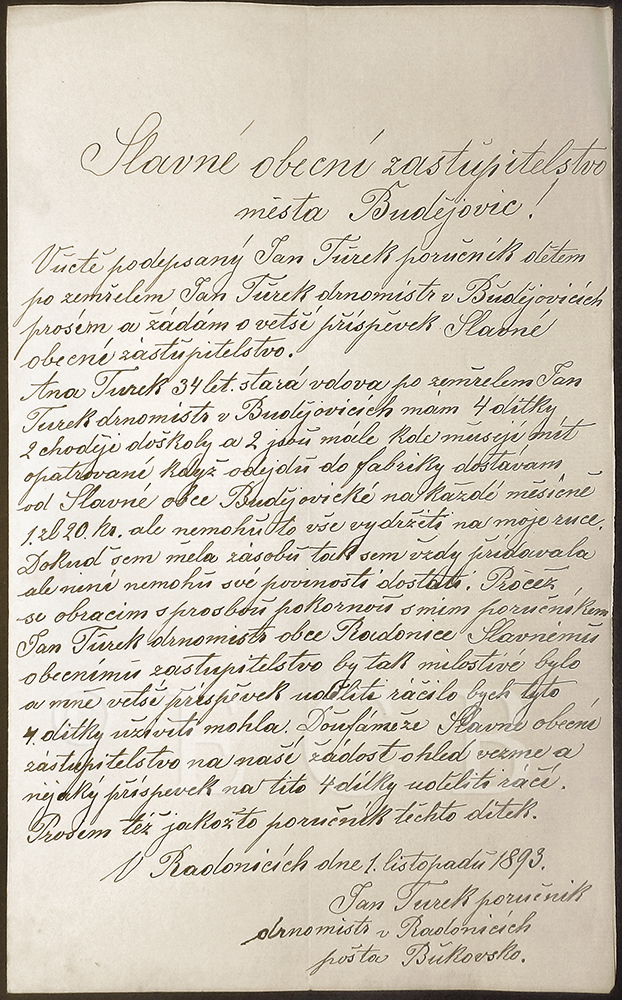 Slavné obecní zastupitelstvo
města Budějovic!
Vuctě podepsaný Jan Turek poručník dětem
po zemřelem Jan Turek drnomistr v Budějovicích
prosím a žádám o vetší příspěvek Slavné
obecní zástupitelstvo.
Ana Turek 34 let. stará vdova po zemřelem Jan
Turek drnomistr v Budějovicích mám 4 dítky
2 choději doskoly a 2 jsou mále kde musejí mít
opatrované když odejdu do fabriky dostávam
od Slavné obce Budějovické na každé měsíčně
1. zl 20. kr. ale nemohu to vše vydržiti na moje ruce.
Dokud sem měla zásobu tak sem vždy přidavala
ale niní nemohu své povinosti dostáti. Pročež
se obracim s prosbou pokornou s mim poručníkem
Jan Turek drnomistr obce Radonice Slavnému
obecnímu zastupitelstvo by tak milostivé bylo
a mně vetší příspěvek uděliti ráčilo bych tyto
4. dítky uživiti mohla. Doufámeže Slavné obecní
zástupitelstvo na naší žádost ohled vezme a
nějaký příspevek na tito 4 dítky uděliti ráčí.
Prosem též jakožto poručník těchto dítek.
V Radonicích dne 1. listopadu 1893.
Jan Turek poručník
drnomistr v Radonicích
pošta Bukovsko.